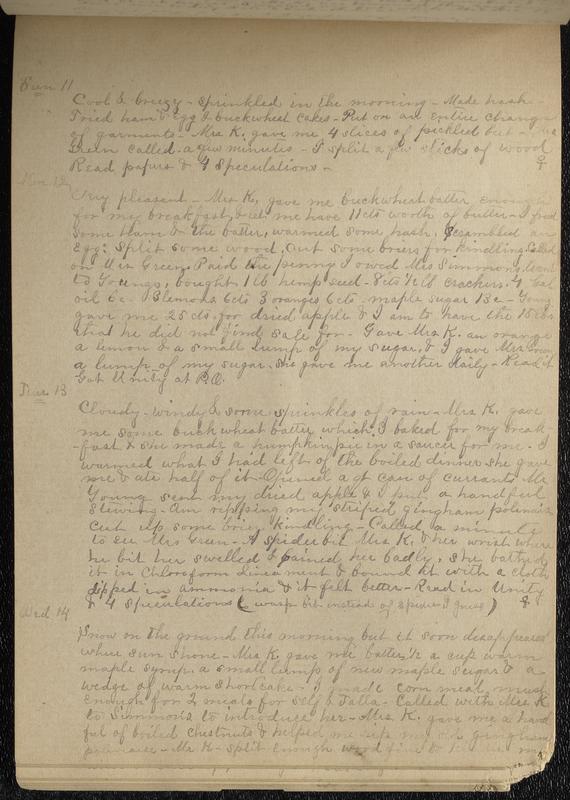 Sun 11
Cool & breezy - sprinkled in the morning - Made hash -
Fried ham & egg & buckwheat cakes - Put on an entire change
of garments - Mrs K. gave me 4 slices of pickled beet -
Green called a few minutes - I split a few sticks of wood
Read papers & 4 Speculations - ♀
Mon 12
Very pleasant - Mrs K. gave me buckwheat batter enough
for my breakfast, & let me have 11 cts worth of butter - I fried
some Ham & the batter, warmed some hash, scrambled an
Egg. Split some wood, Cut some briers for kindling. Called
on Mrs Green. Paid the penny I owed Mrs Simmons. Went
to Youngs, bought 1 lb hemp seed - 8 cts ½ lb crackers. 4
oil 6c - 3 lemons 6 cts 3 oranges 6 cts - maple sugar 13c - Young
gave me 25 cts for dried apple & I am to have the 15 lbs
that he did not find sale for - Gave Mrs K. an orange
a lemon & a small lump of my sugar, & I gave Mrs Green
a lump of my sugar. She gave me another daily - Read it
Got Unity at P.O.
Tues 13
Cloudy - windy & some sprinkles of rain - Mrs K. gave
me some buckwheat batter which I baked for my break
-fast & she made a pumpkin pie in a saucer for me - I
warmed what I had left of the boiled dinner she gave
me & ate half of it - Opened a qt can of currants Mr
Young sent my dried apple & I put a handful
stewing - Am ripping my striped gingham polonaise
Cut up some brier kindling - Called a minute
to see Mrs Green - A spider bit Mrs K. & her wrist where
he bit her swelled & pained her badly, she bathed
it in Chloroform liniament & bound it with a cloth
dipped in ammonia & it felt better - Read in Unity
& 4 Speculations (wasp bit instead of spider I guess) ♀
Wed 14
Snow on the ground this morning but it soon disappeared
when sun shone - Mrs K. gave me batter, ½ a cup warm
maple syrup, a small lump of new maple sugar & a
wedge of warm shortcake - I made corn meal mush
enough for 2 meals for self & Talla - Called with Mrs K
to Simmons to introduce her - Mrs K. gave me a hand
ful of boiled chestnuts & helped me rip my old gingham
polonaise - Mr K - split enough wood fine to